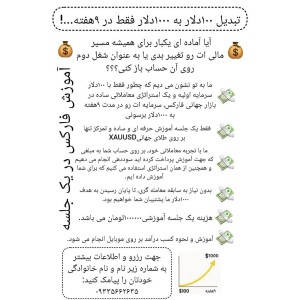 تبدیل ۱۰۰دلار به ۱۰۰۰دلار فقط در ۹هفته...!
آیا آماده ای یکبار برای همیشه مسیر
مالی ات رو تغییر بدی یا به عنوان شغل دوم
روی آن حساب باز کنی؟؟؟
آموزش فارکس در یک جلسه
ما به تو نشون می دیم که چطور فقط با ۱۰۰دلار
سرمایه اولیه و یک استراتژی معاملاتی ساده در
بازار جهانی فارکس، سرمایه ات رو در مدت ۹هفته
به ۱۰۰۰دلار برسونی
فقط یک جلسه آموزش حرفه ای و ساده و تمرکز تنها
بر روی طلای جهانی XAUUSD
ما با تجربه معاملاتی خود، بر روی حساب شما به مبلغی
که جهت آموزش پرداخت کرده اید سوددهی انجام می دهیم
و همچنین از همان استراتژی استفاده می کنیم که برای شما
آموزش داده ایم.
بدون نیاز به سابقه معامله گری، تا پایان رسیدن به هدف
۱۰۰۰دلار ما پشتیبان شما خواهیم بود.
هزینه یک جلسه آموزشی ۱۰۰۰۰۰۰تومان می باشد.
آموزش و نحوه کسب درآمد بر روی موبایل انجام می شود.
جهت رزرو و اطلاعات بیشتر
به شماره زیر نام و نام خانوادگی
خودتان را پیامک کنید
۰۹۳۳۵۶۶۲۶۳۵
$1000
$100
۹هفته